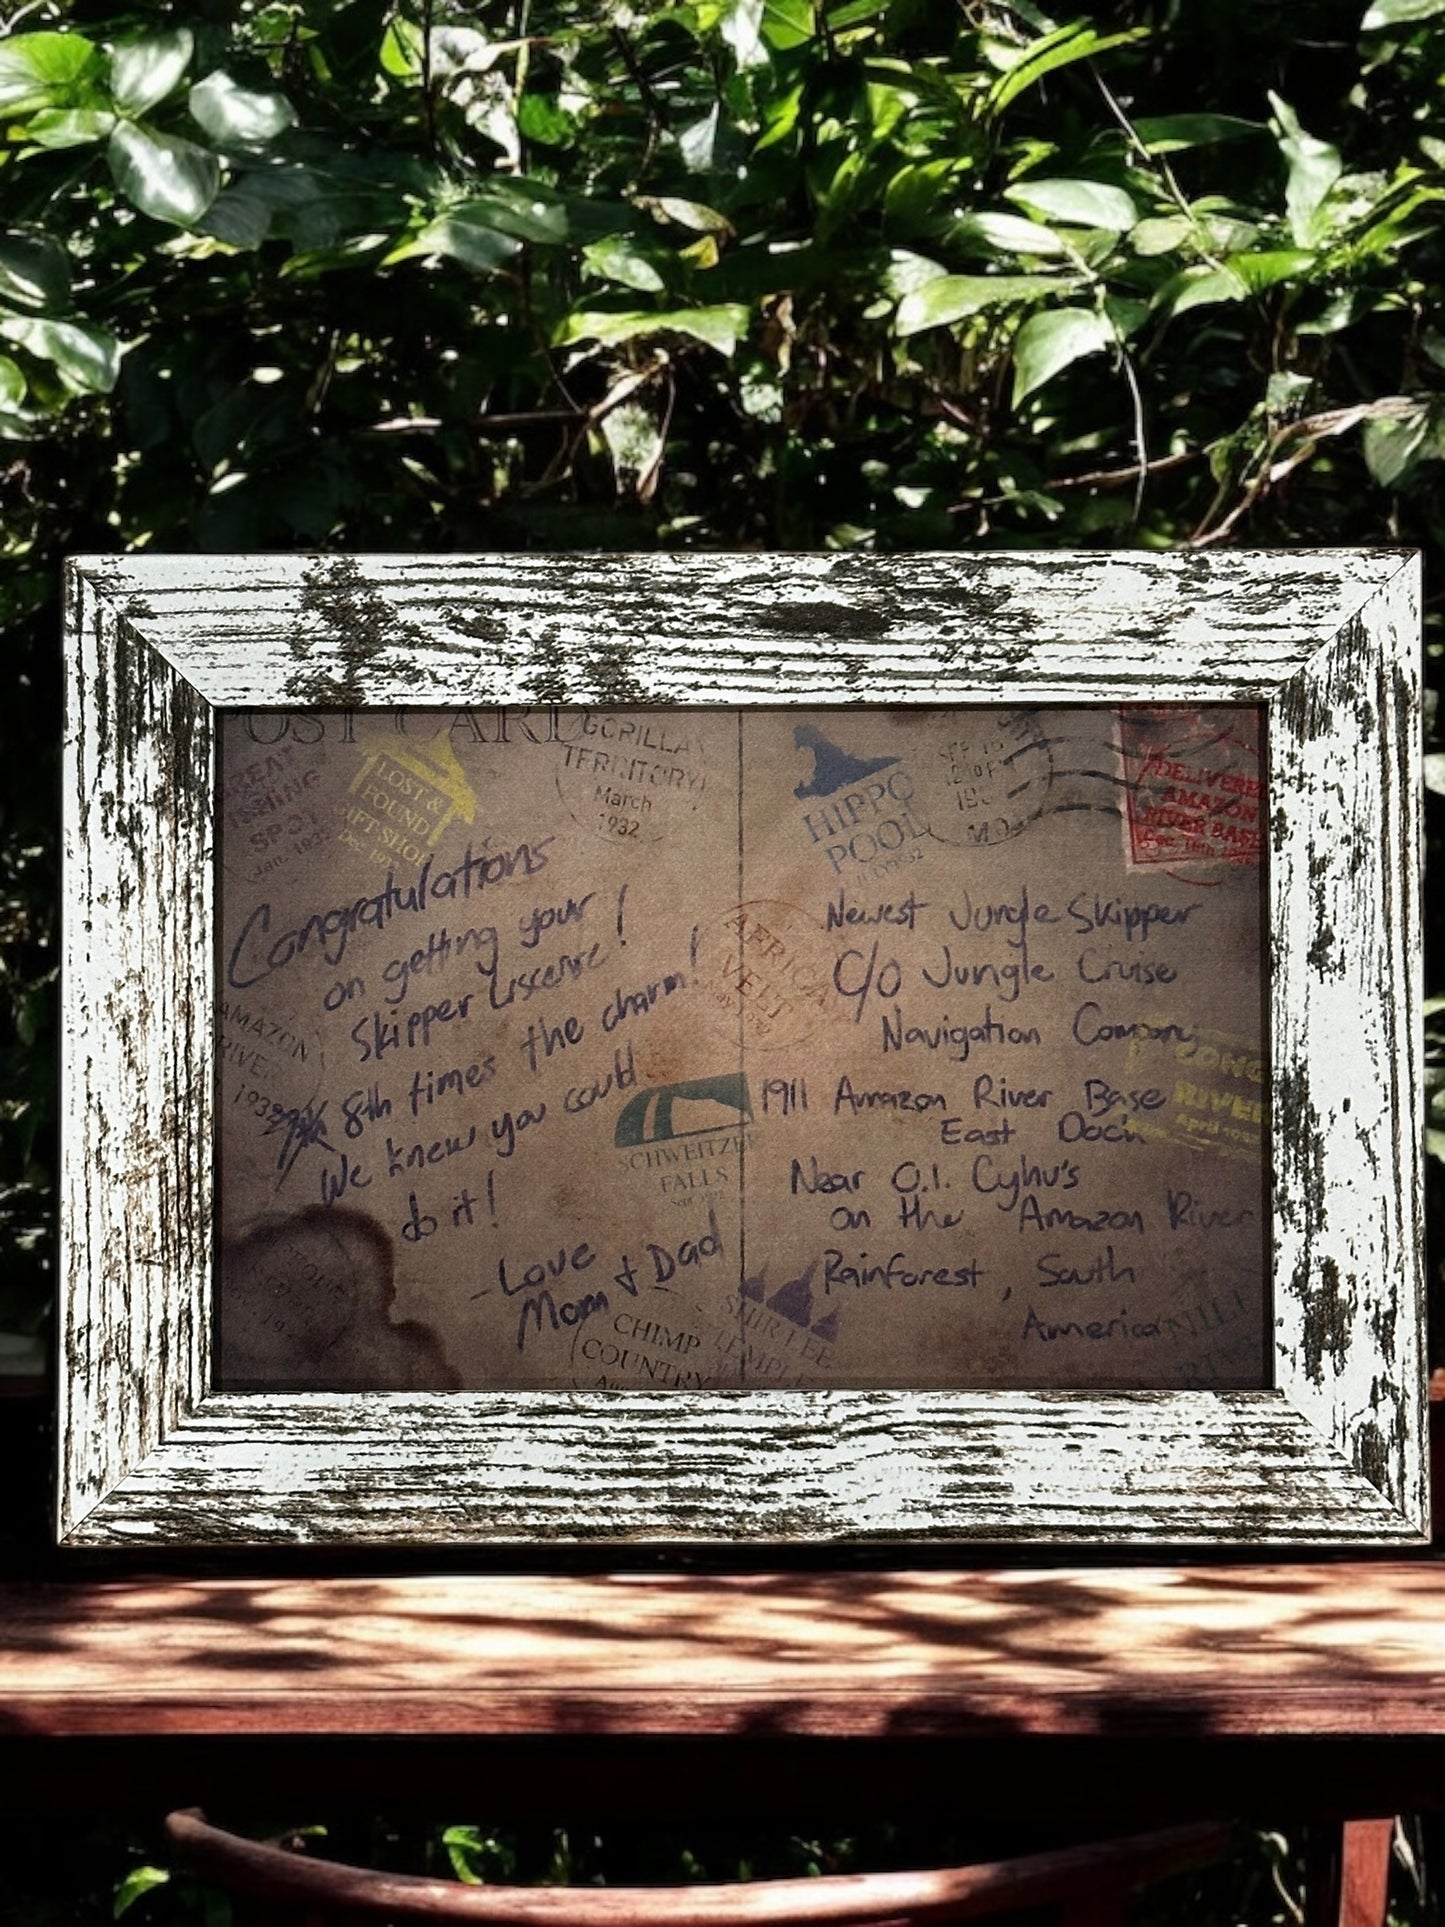 POST CARD
GREAT
FISHING
SPOT
Jan. 193
LOST &
FOUND
GIFT SHOP
Dec. 193
GORILLA
TERRITORY
March
1932
HIPPO
POOL
SEP 16
MO
DELIVERED
AMAZON
RIVER BASE
Congratulations
on getting your
Skipper Liscense!
8th times the charm!
We knew you could
do it!
- Love
Mom & Dad
AMAZON
RIVE
1932
AFRICAN
VELT
SCHWEITZE
FALLS
CHIMP
COUNTRY
SHIRLEE
TEMPLE
Newest Jungle Skipper
C/o Jungle Cruise
Navigation Company
1911 Amazon River Base
East Dock
Near O.I. Cyhu's
on the Amazon River
Rainforest, South
America
CONG
RIVER
April
NILE